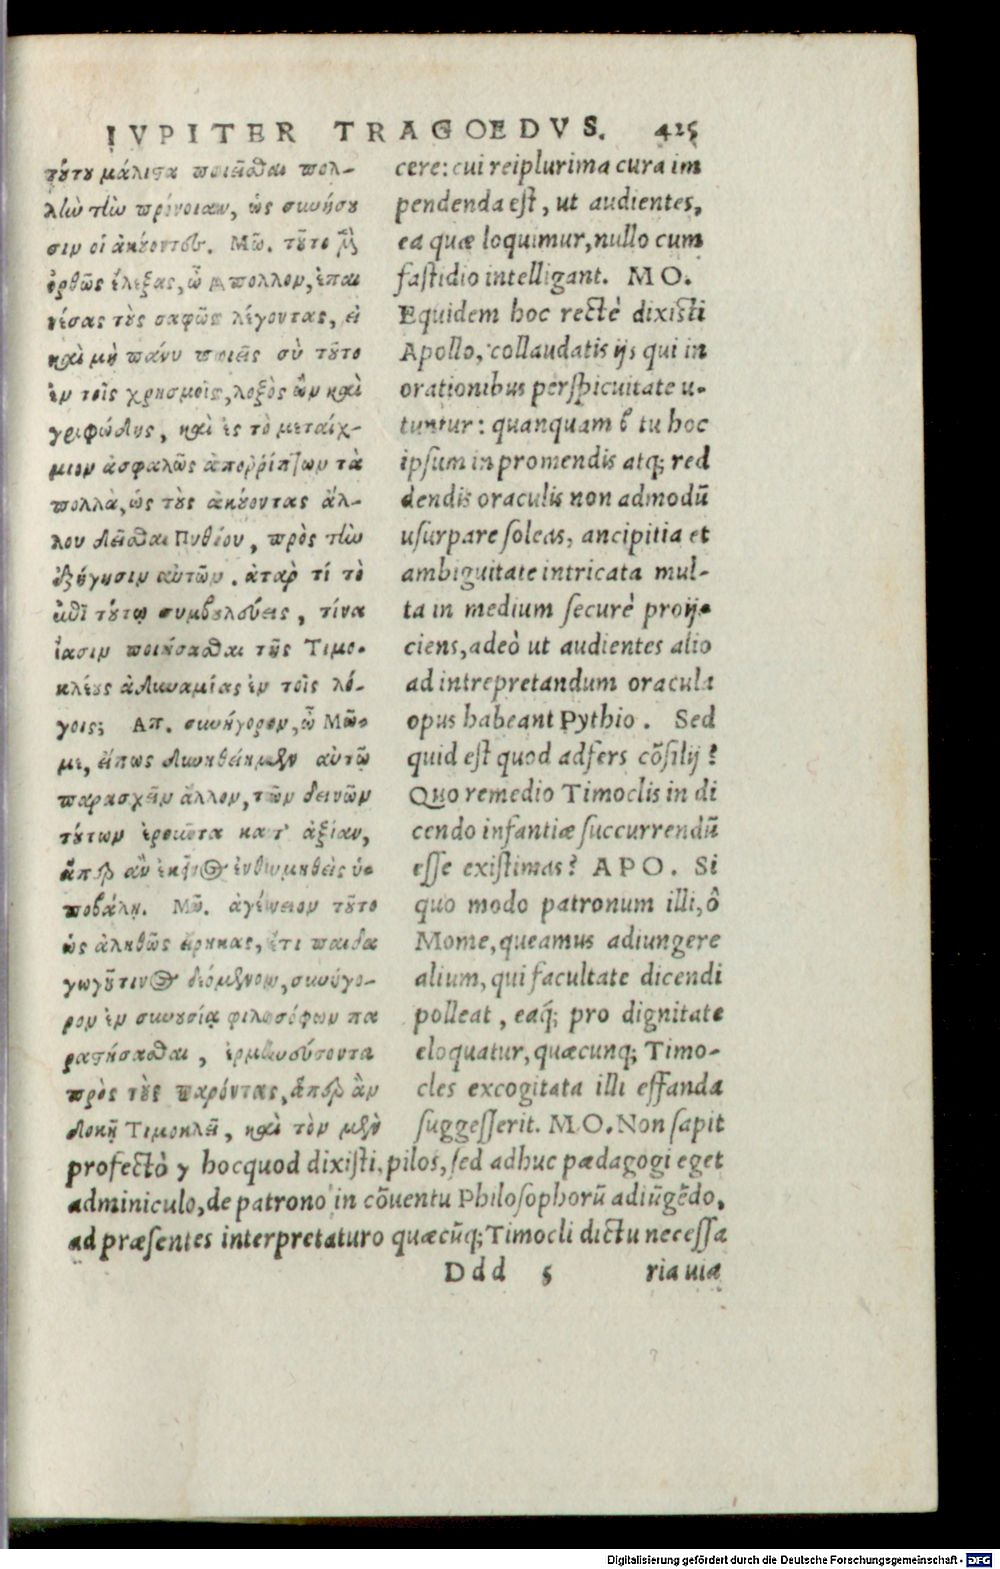 IVPITER TRAGOEDVS. 425
τούτου μάλιστα ποιεῖσθαι πολ-
λὴν τὴν πρόνοιαν, ὡς συνήσου
σιν οἱ ἀκούοντες. Μῶ. τοῦτο μὲν
ὀρθῶς ἔλεξας, ὦ Ἄπολλον, ἐπαι
νέσας τοὺς σαφῶς λέγοντας, εἰ
καὶ μὴ πάνυ ποιεῖς σὺ τοῦτο
ἐν τοῖς χρησμοῖς, λοξὸς ὢν καὶ
γριφώδης, καὶ ἐς τὸ μεταίχ-
μιον ἀσφαλῶς ἀποῤῥίπτων τὰ
πολλὰ, ὡς τοὺς ἀκούοντας ἄλ-
λου δεῖσθαι Πυθίου, πρὸς τὴν
ἐξήγησιν αὐτῶν. ἀτὰρ τί τὸ
ἐπὶ τούτῳ συμβουλεύεις, τίνα
ἴασιν ποιήσασθαι τῆς Τιμο-
κλέους ἀδυναμίας ἐν τοῖς λό-
γοις; Απ. συνήγορον, ὦ Μῶ-
με, εἴπως δυνηθείημεν αὐτῷ
παρασχεῖν ἄλλον, τῶν δεινῶν
τούτων ἐροῦντα κατ' ἀξίαν,
ἅπερ ἂν ἐκεῖνος ἐνθυμηθεὶς ὑ-
ποβάλῃ. Μῶ. ἀγένειον τοῦτο
ὡς ἀληθῶς εἴρηκας, ἔτι παιδα
γωγοῦ τινος δεόμενον, συνήγο-
ρον ἐν συνουσίᾳ φιλοσόφων πα
ραστήσασθαι, ἑρμηνεύσοντα
πρὸς τοὺς παρόντας, ἅπερ ἂν
δοκῇ Τιμοκλεῖ, καὶ τὸν μὲν
cere: cui rei plurima cura im
pendenda est, ut audientes,
ea quæ loquimur, nullo cum
fastidio intelligant. MO.
Equidem hoc rectè dixisti
Apollo, collaudatis ijs qui in
orationibus perspicuitate u-
tuntur: quanquam & tu hoc
ipsum in promendis atq; red
dendis oraculis non admodū
usurpare soleas, ancipitia et
ambiguitate intricata mul-
ta in medium securè proij-
ciens, adeò ut audientes alio
ad intrepretandum oracula
opus habeant Pythio. Sed
quid est quod adfers cōsilij?
Quo remedio Timoclis in di
cendo infantiæ succurrendū
esse existimas? APO. Si
quo modo patronum illi, ô
Mome, queamus adiungere
alium, qui facultate dicendi
polleat, eaq́; pro dignitate
eloquatur, quæcunq; Timo-
cles excogitata illi effanda
suggesserit. MO. Non sapit
profectò γ hocquod dixisti, pilos, sed adhuc pædagogi eget
adminiculo, de patrono in cōuentu Philosophorū adiūgēdo,
ad præsentes interpretaturo quæcūq; Timocli dictu necessa
Ddd 5 ria uia
Digitalisierung gefördert durch die Deutsche Forschungsgemeinschaft - DFG